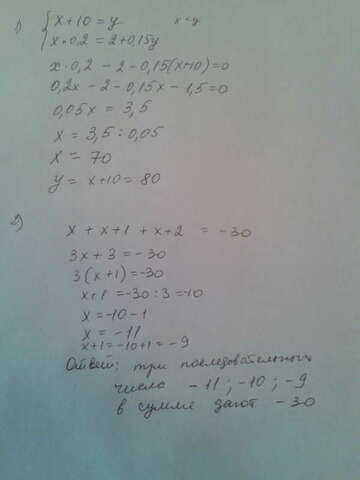 1) { x+10 = y x < y
x · 0,2 = 2 + 0,15y
x · 0,2 - 2 - 0,15(x+10)=0
0,2x - 2 - 0,15x - 1,5=0
0,05x = 3,5
x = 3,5 : 0,05
x = 70
y = x+10 = 80
2) x + x+1 + x+2 = -30
3x + 3 = -30
3(x+1)=-30
x+1 = -30 : 3 = -10
x = -10 - 1
x = -11
x+1 = -10+1 = -9
Ответ: три последовательных
числа -11 ; -10 ; -9
в сумме дают -30